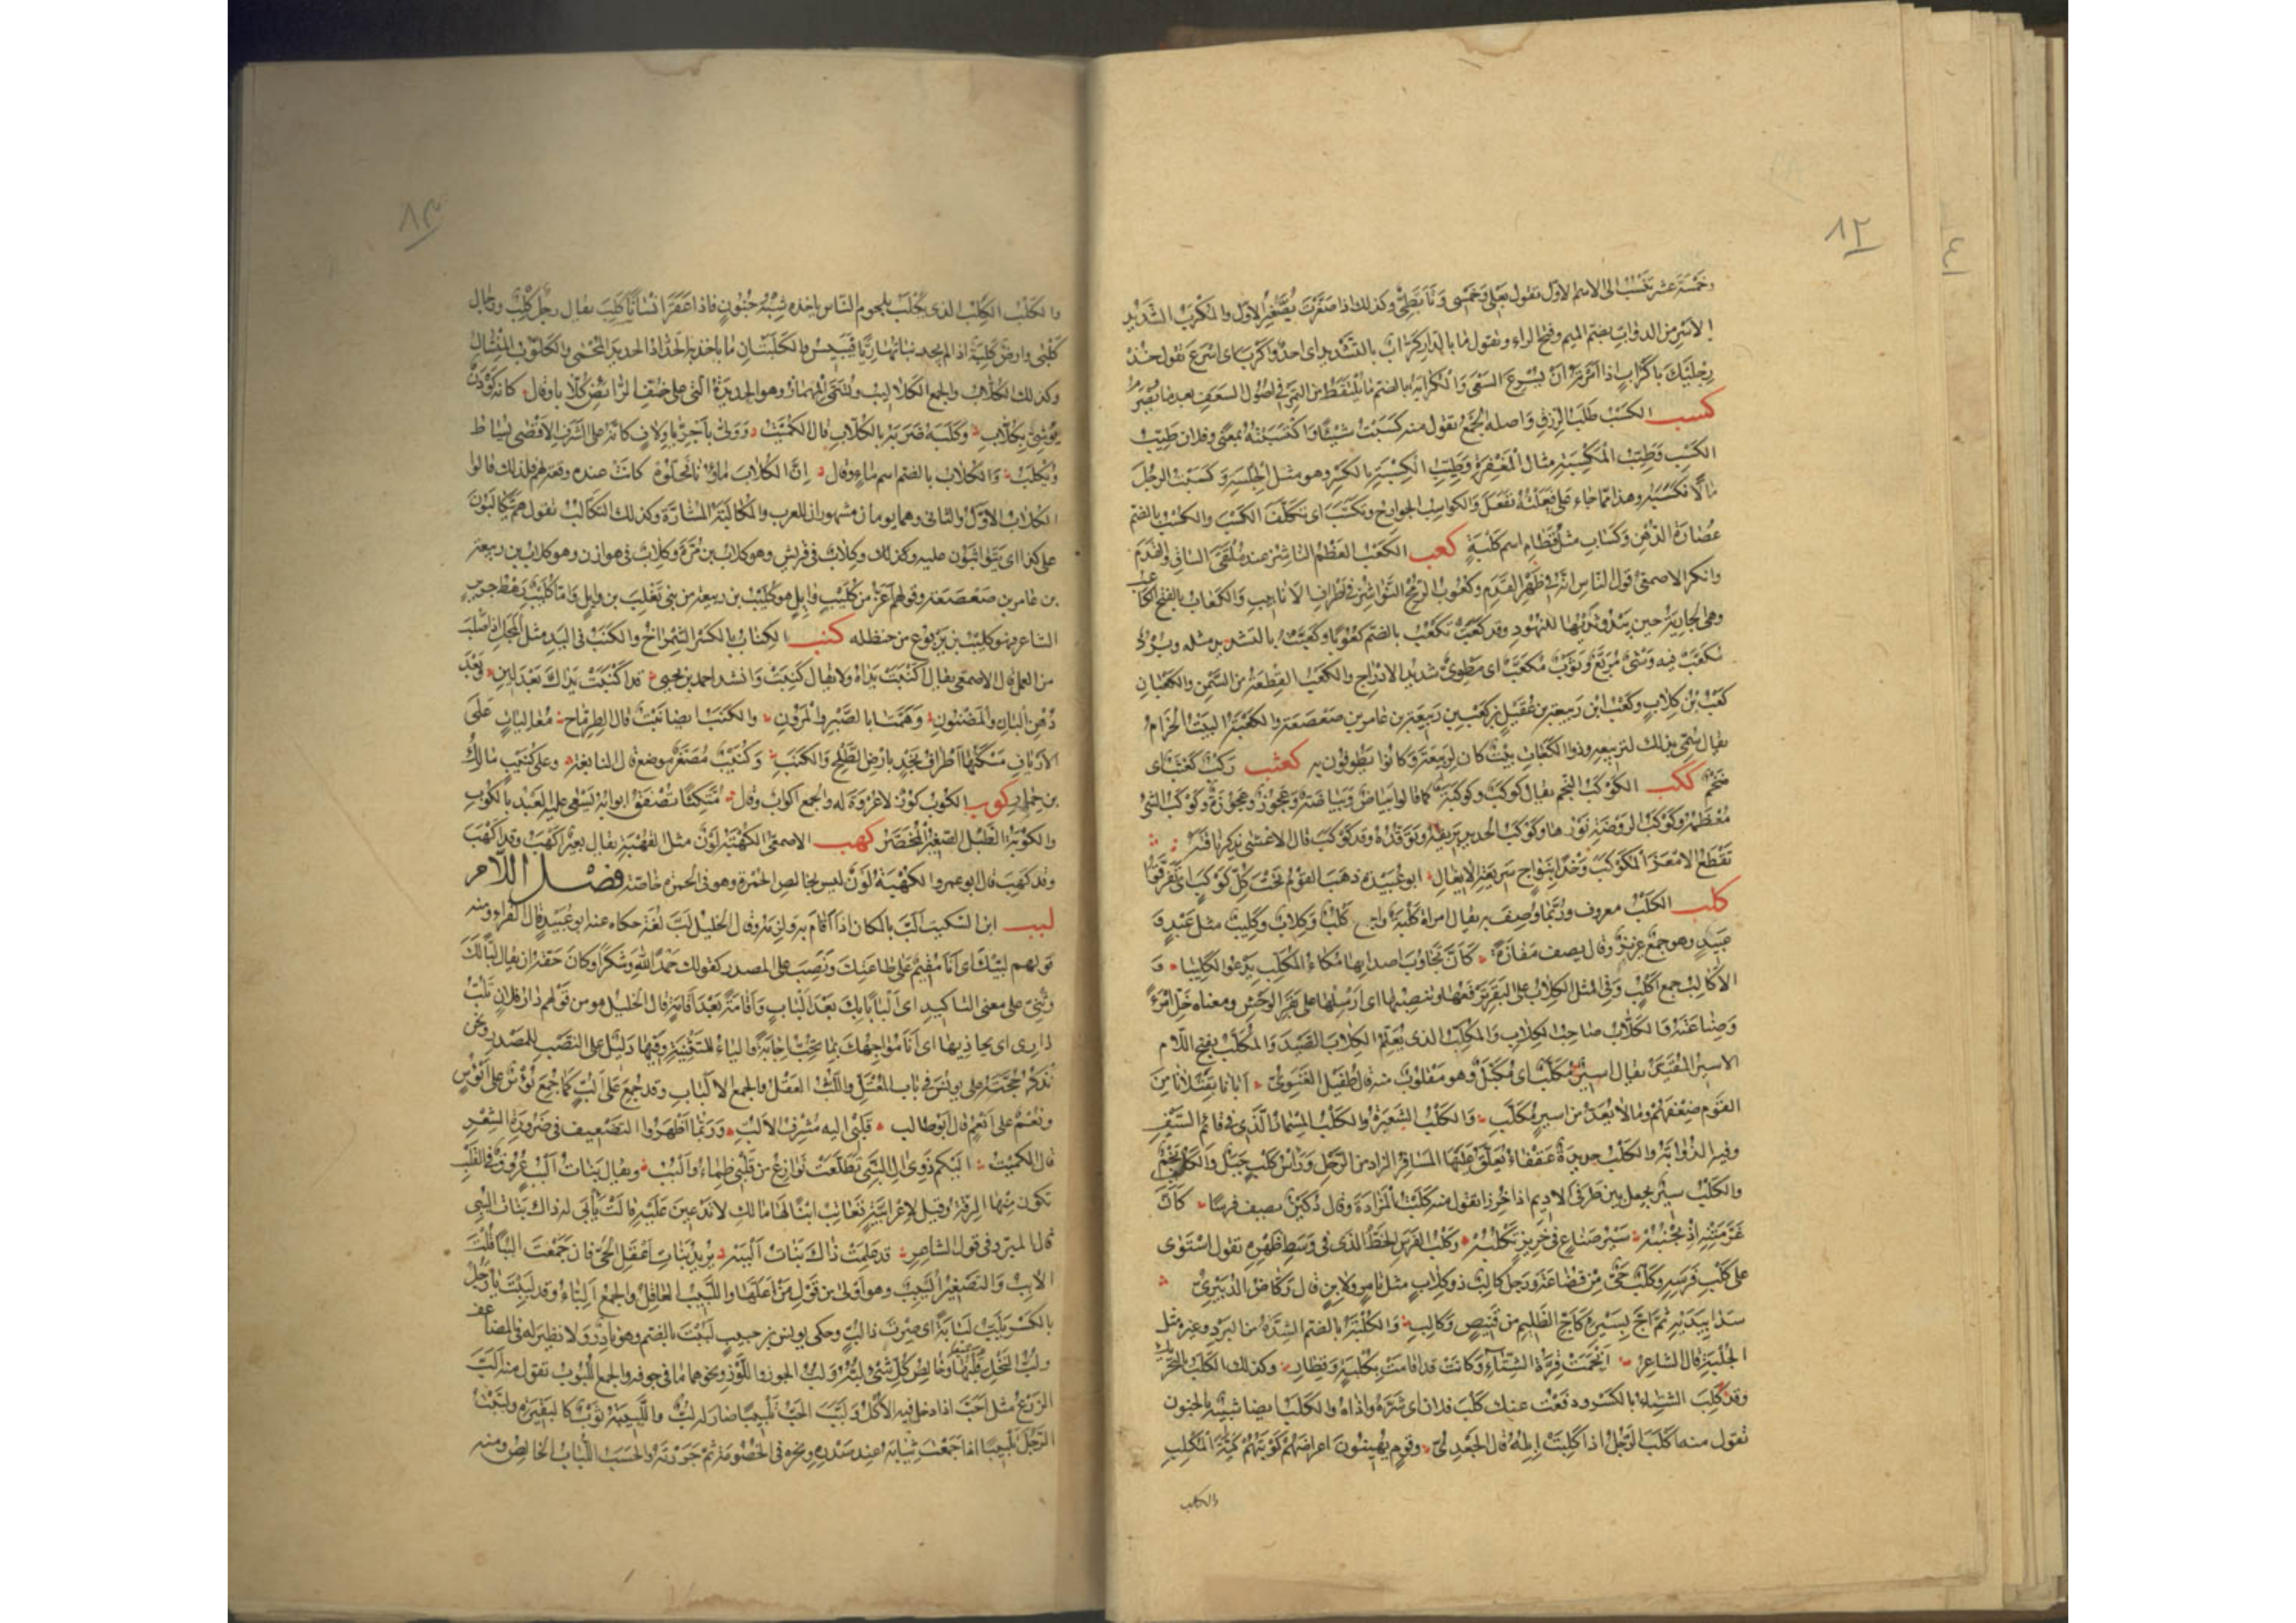 ٨٢
وخمسة عشر تنسب الى الاسم الاول تقول بعلي وخمسي وتأبطي وكذلك اذا صغرت تصغر الاول والمكرب الشديد
الاسر من الدواب بضم الميم وفتح الراء وتقول ما بالدار كراب بالتشديد اى احد واكرب اى اسرع تقول خذ
رجليك باكراب اذا امر ان يسرع السعى والكرابة بالضم ما يلتقط من التمر فى اصول السعف بعد ما تصرم
كسب الكسب طلب الرزق واصله الجمع تقول منه كسبت شيئا واكتسبته بمعنى وفلان طيب
الكسب وطيب المكسبة مثال المغفرة وطيب الكسبة بالكسر وهو مثل الجلسة وكسبت الرجل
مالا فكسبه وهذا مما جاء على فعلته ففعل والكواسب الجوارح وتكسب اى تكلف الكسب والكسب بالضم
عصارة الدهن وكساب مثل قطام اسم كلبة كعب الكعب العظم الناشز عند ملتقى الساق والقدم
وانكر الاصمعي قول الناس انه فى ظهر القدم وكعوب الرمح النواشز فى اطراف الانابيب والكعاب بالفتح الكاعب
وهى الجارية حين يبدو ثديها للنهود وقد كعبت تكعب بالضم كعوبا وكعبت بالتشديد مثله وبرد
مكعب فيه وشى مربع وثوب مكعب اى مطوى شديد الادراج والكعب القطعة من السمن والكعبان
كعب بن كلاب وكعب ابن ربيعة بن عقيل بن كعب بن ربيعة بن عامر بن صعصعة والكعبة البيت الحرام
يقال سمى بذلك لتربيعه وذوا الكعبات بيت كان لربيعة وكانوا يطوفون به كعثب ركب كعثب اى
ضخم ككب الكوكب النجم يقال كوكب وكوكبة كما قالوا بياض وبياضة وعجوز وعجوزة وكوكب الشئ
معظمه وكوكب الروضة نورها وكوكب الحديد بريقه وتوقده وقد كوكب قال الاعشى يذكر ناقته
تقطع الامعز المكوكب وخدا بنواج سريعة الايغال ابو عبيدة ذهب القوم تحت كل كوكب اى تفرقوا
كلب الكلب معروف وربما وصف به يقال امراة كلبة والجمع اكلب وكلاب وكليب مثل عبد و
عبيد وهو جمع عزيز وقال يصف مفازة كان تجاوب اصدائها مكاء المكلب يدعو الكليبا و
الاكالب جمع اكلب وفى المثل الكلاب على البقر ترفعها وتنصبها اى ارسلها على بقر الوحش ومعناه خل امرءا
وصناعته والكلاب صاحب الكلاب والمكلب الذى يعلم الكلاب الصيد والمكلب بفتح اللام
الاسير المقيد يقال اسير مكلب اى مكبل وهو مقلوب منه قال طفيل الغنوى اباءنا بقتلانا من
القوم ضعفهم وما لا يعد من اسير مكلب والكلب الشعيرة والكلب المسمار الذى فى قائم السيف
وفيه الذوابة والكلب حديدة عقفاء يعلق عليها المسافر الزاد من الرحل وراس كلب جبل والكلب نجم
والكلب سير يجعل بين طرفى الاديم اذا خرزا تقول منه كلبت المزادة وقال دكين يصف فرسا كان
غر متنه اذ نجنبه سير صناع فى خريز تكلبه وكلب الفرس الخط الذى فى وسط ظهره تقول استوى
على كلب فرسه وكلب حى من قضاعة ورجل كالب ذو كلاب مثل تامر ولابن قال ركاض الدبيرى
سدا بيديه ثم اج بسيره كاج الظليم من قنيص وكالب والكلبة بالضم الشدة من البرد وغيره مثل
الجلبة قال الشاعر انجمت قرة الشتاء وكانت قد اقامت بكلبة وقطار وكذلك الكلب بالتحريك
وقد كلب الشتاء بالكسر ودفعت عنك كلب فلان اى شره واذاه والكلب ايضا شبيه بالجنون
تقول منه اكلب الرجل اذا كلبت ابله قال الجعدى وقوم يهينون اعراضهم كويتهم كية المكلب
والكلب
٨٣
والكلب الكلب الذى يكلب بلحوم الناس ياخذه شبه جنون فاذا عقر انسانا كلب يقال رجل كلب ورجال
كلبى وارض كلبة اذا لم يجد نباتها ريا فييبس والكلبتان ما ياخذ به الحداد الحديد المحمى والكلوب المنشال
وكذلك الكلاب والجمع الكلاليب ويسمى المهماز وهو الحديدة التى على خف الرائض كلابا وقال كانه كودن
يوشى بكلاب وكلبه ضربه بالكلاب قال الكميت وولى باجريا ولاف كانه على الشرف الاقصى يساط
ويكلب والكلاب بالضم اسم ماء وقال ان الكلاب ماؤنا فخلوه كانت عنده وقعة لهم فلذلك قالوا
الكلاب الاول والثانى وهما يومان مشهوران للعرب والمكالبة المشارة وكذلك التكالب تقول هم يتكالبون
على كذا اى يتواثبون عليه وكذلك وكلاب فى قريش وهو كلاب بن مرة وكلاب فى هوازن وهو كلاب بن ربيعة
بن عامر بن صعصعة وقولهم اعز من كليب وايل هو كليب بن ربيعة من بنى تغلب بن وايل واما كليب رهط جرير
الشاعر فهو كليب بن يربوع بن حنظله كنب الكناب بالكسر الشمراخ والكنب فى اليد مثل المجل اذا صلبت
من العمل قال الاصمعى يقال اكنبت يداه ولا يقال كنبت وانشد احمد بن يحيى قد اكنبت يداك بعد لين وبعد
دهن البان والمضنون وهمتا بالصبر والمرون والكنب ايضا نبت قال الطرماح معاليات على
الارياف مسكنها اطراف نجد بارض الطلح والكنب وكنيب مصغر موضع قال النابغة وعلى كنيب مالك
بن حمار كوب الكوب كوز لا عروة له والجمع اكواب وقال متكئا تصفق ابوابه يسقى عليه العبد بالكوب
والكوبة الطبل الصغير المخصر كهب الاصمعى الكهبة لون مثل القهبة يقال بعير اكهب وقد اكهب
وقد كهب قال ابو عمرو الكهبة لون ليس بخالص الحمرة وهو فى الحمرة خاصة فصل اللام
لبب ابن السكيت الب بالمكان اذا اقام به ولزمه وقال الخليل لب لغة حكاه عنه ابو عبيد قال الفراء ومنه
قولهم لبيك اى انا مقيم على طاعتك ونصب على المصدر كقولك حمدا لله وشكرا وكان حقه ان يقال لبا لك
وثنى على معنى التاكيد اى البابا بك بعد الباب واقامة بعد اقامة قال الخليل هو من قولهم دار فلان تلب
دارى اى يحاذيها اى انا مواجهك بما تحب اجابة والياء للتثنية وفيها دليل على النصب للمصدر ونحن
نذكر حجته على يونس فى باب المعتل واللب العقل والجمع الالباب وقد جمع على الب كما جمع بوس على ابوس
ونعم على انعم قال ابو طالب قلبى اليه مشرف الالب وربما اظهروا التضعيف فى ضرورة الشعر
قال الكميت اليكم ذوى ال النبى تطلعت نوازع من قلبى ظماء والبب ويقال بنات البب عروق فى القلب
تكون منها الرقة وقيل لاعرابية تعاتب ابنا لها ما لك لا تدعين عليه قالت يابى له ذاك بنات الببى
قال المبرد فى قول الشاعر قد علمت ذاك بنات الببه يريد بنات اعقل الحى فان جمعت الببا قلت
الابب والتصغير اليبب وهو اولى من قول من اعلها واللبيب العاقل والجمع الباء وقد لببت يا رجل
بالكسر تلب لبابة اى صرت ذا لب وحكى يونس بن حبيب لببت بالضم وهو نادر ولا نظير له فى المضاعف
ولب النخل قلبها وخالص كل شئ لبه ولب الجوز واللوز ونحوهما ما فى جوفه والجمع اللبوب تقول منه الب
الزرع مثل احب اذا دخل فيه الاكل ولبب الحب تلبيبا صار له لب واللبيبة ثوب كالبقيرة ولببت
الرجل تلبيبا اذا جمعت ثيابه عند صدره ونحره فى الخصومة ثم جررته والحسب اللباب الخالص ومنه